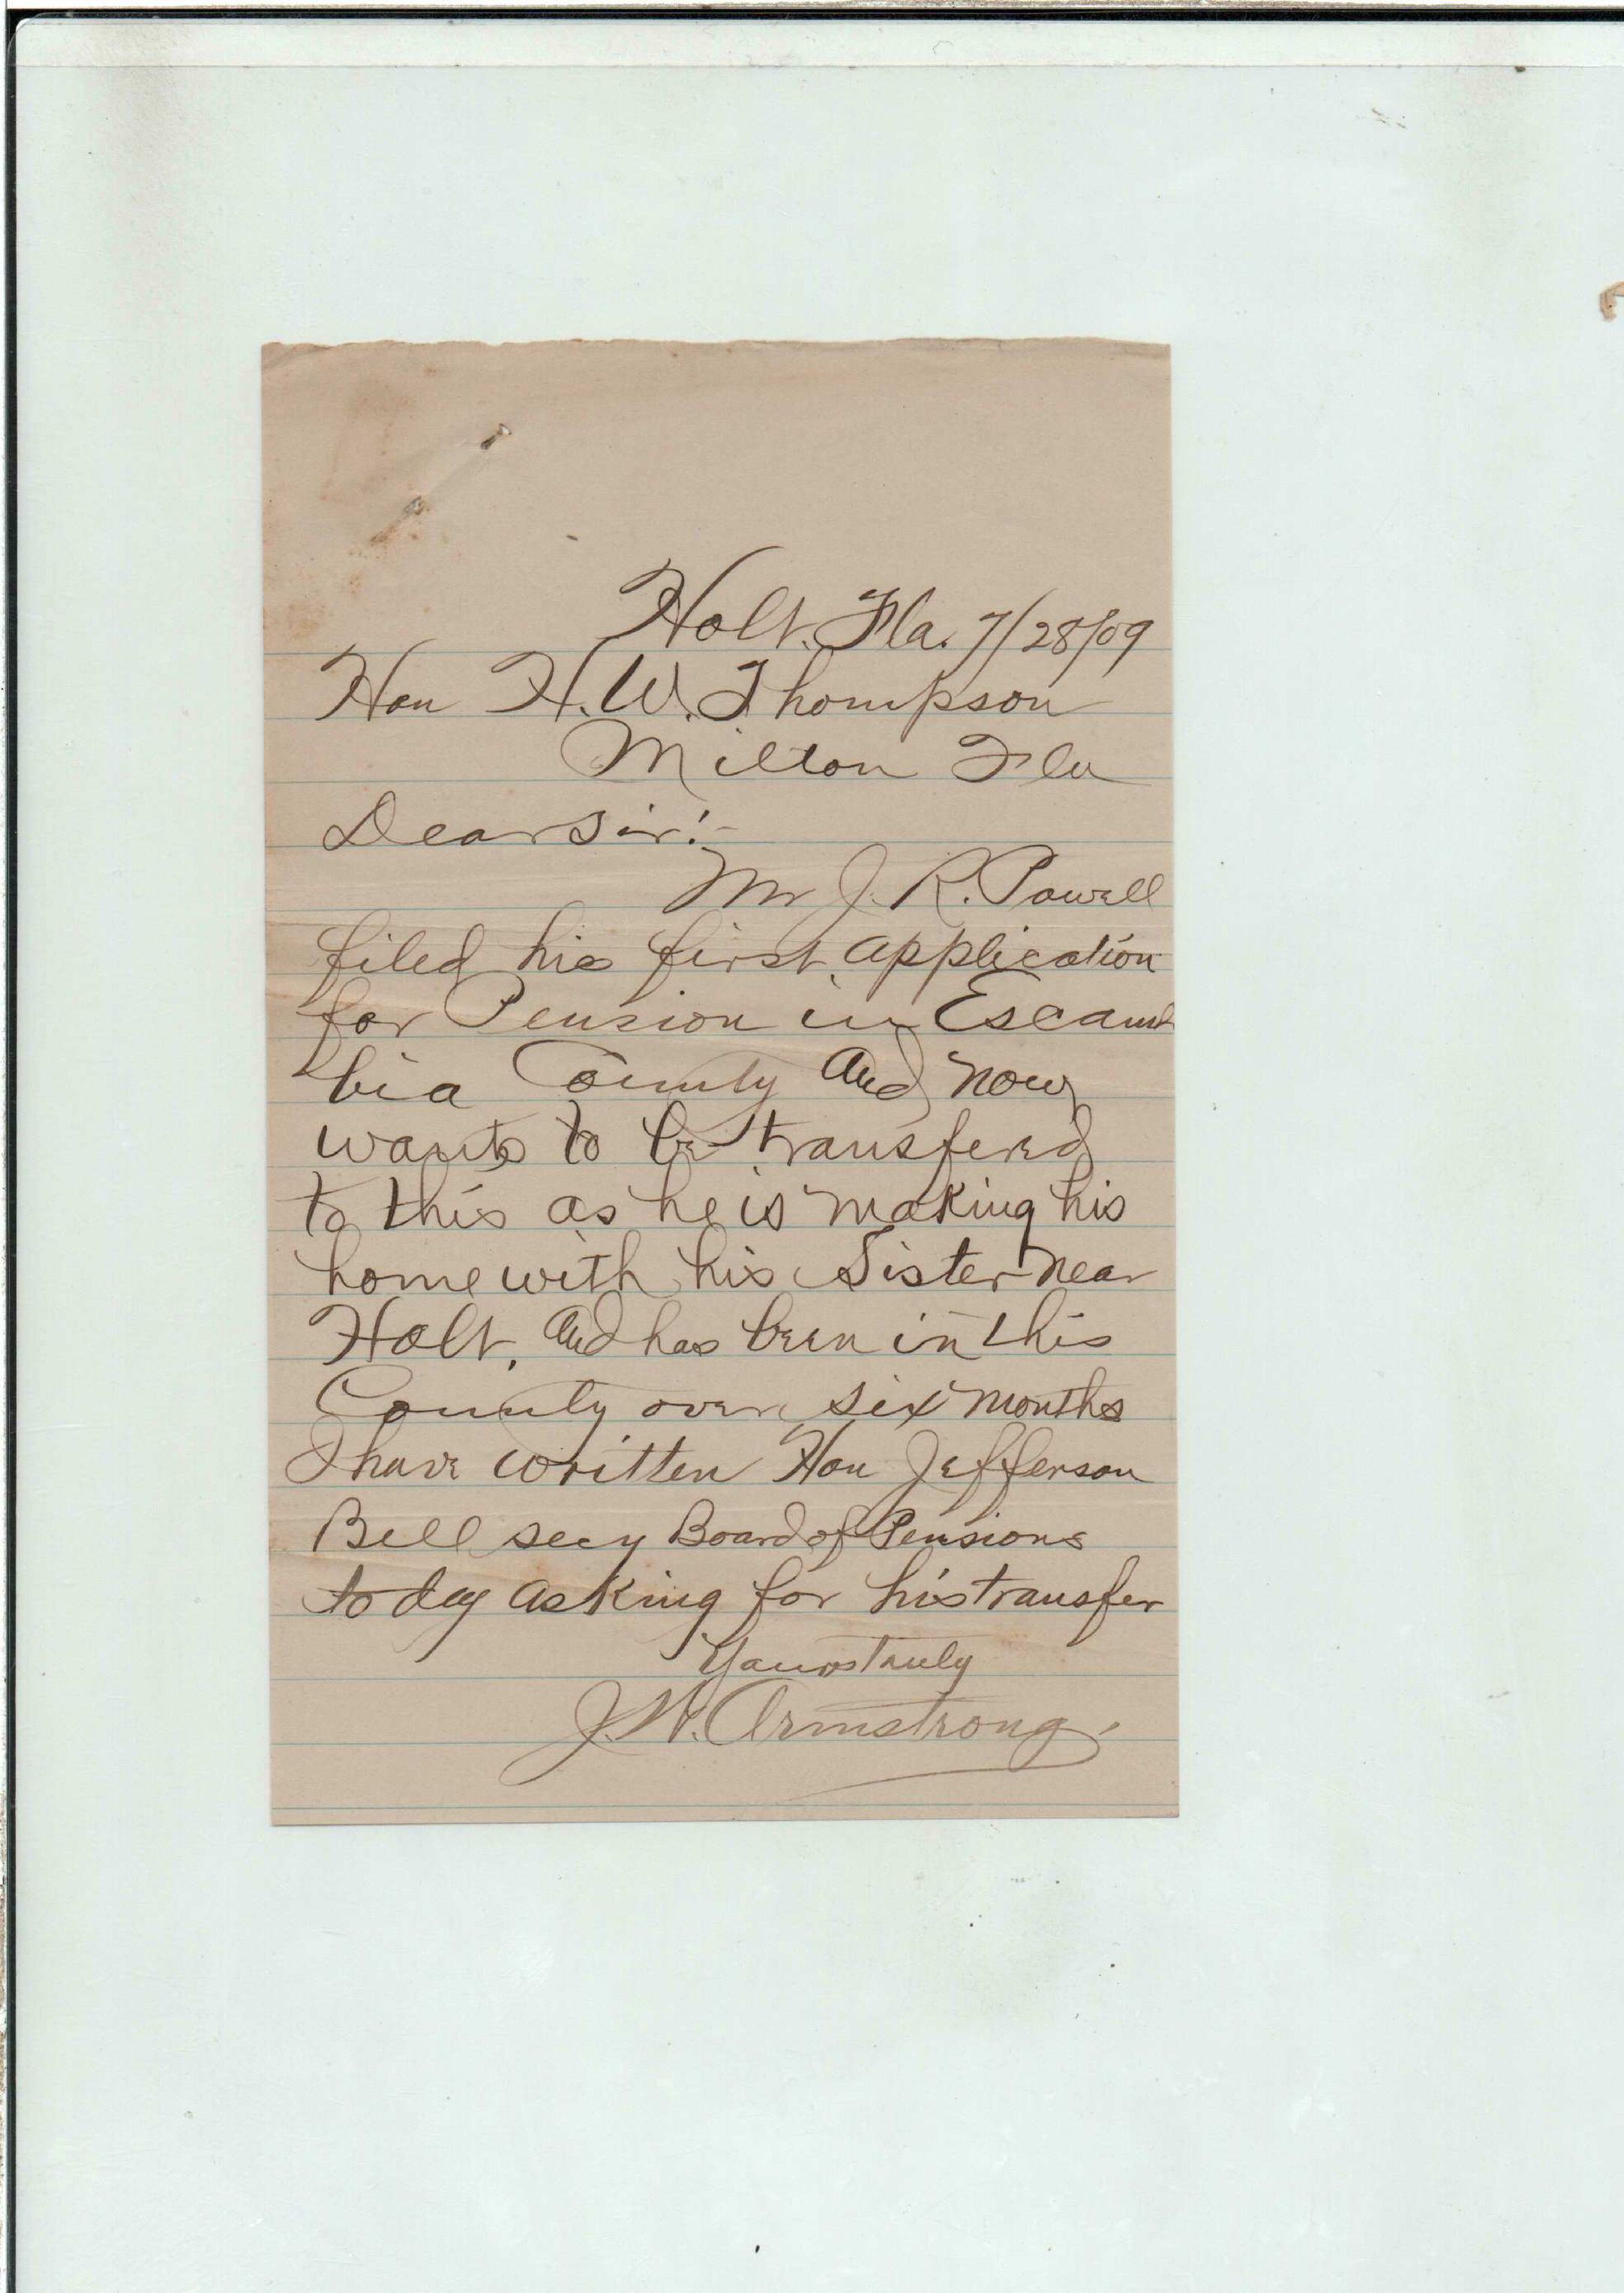 Holt. Fla. 7/28/09
Hon H. W. Thompson
Milton Fla
Dear Sir:-
Mr J. R. Powell
filed his first application
for Pension in Escam
bia County and now
wants to be transfered
to this as he is making his
home with his Sister near
Holt, and has been in this
County over six months
I have written Hon Jefferson
Bell secy Board of Pensions
to day asking for his transfer
Yours truly
J. W. Armstrong.